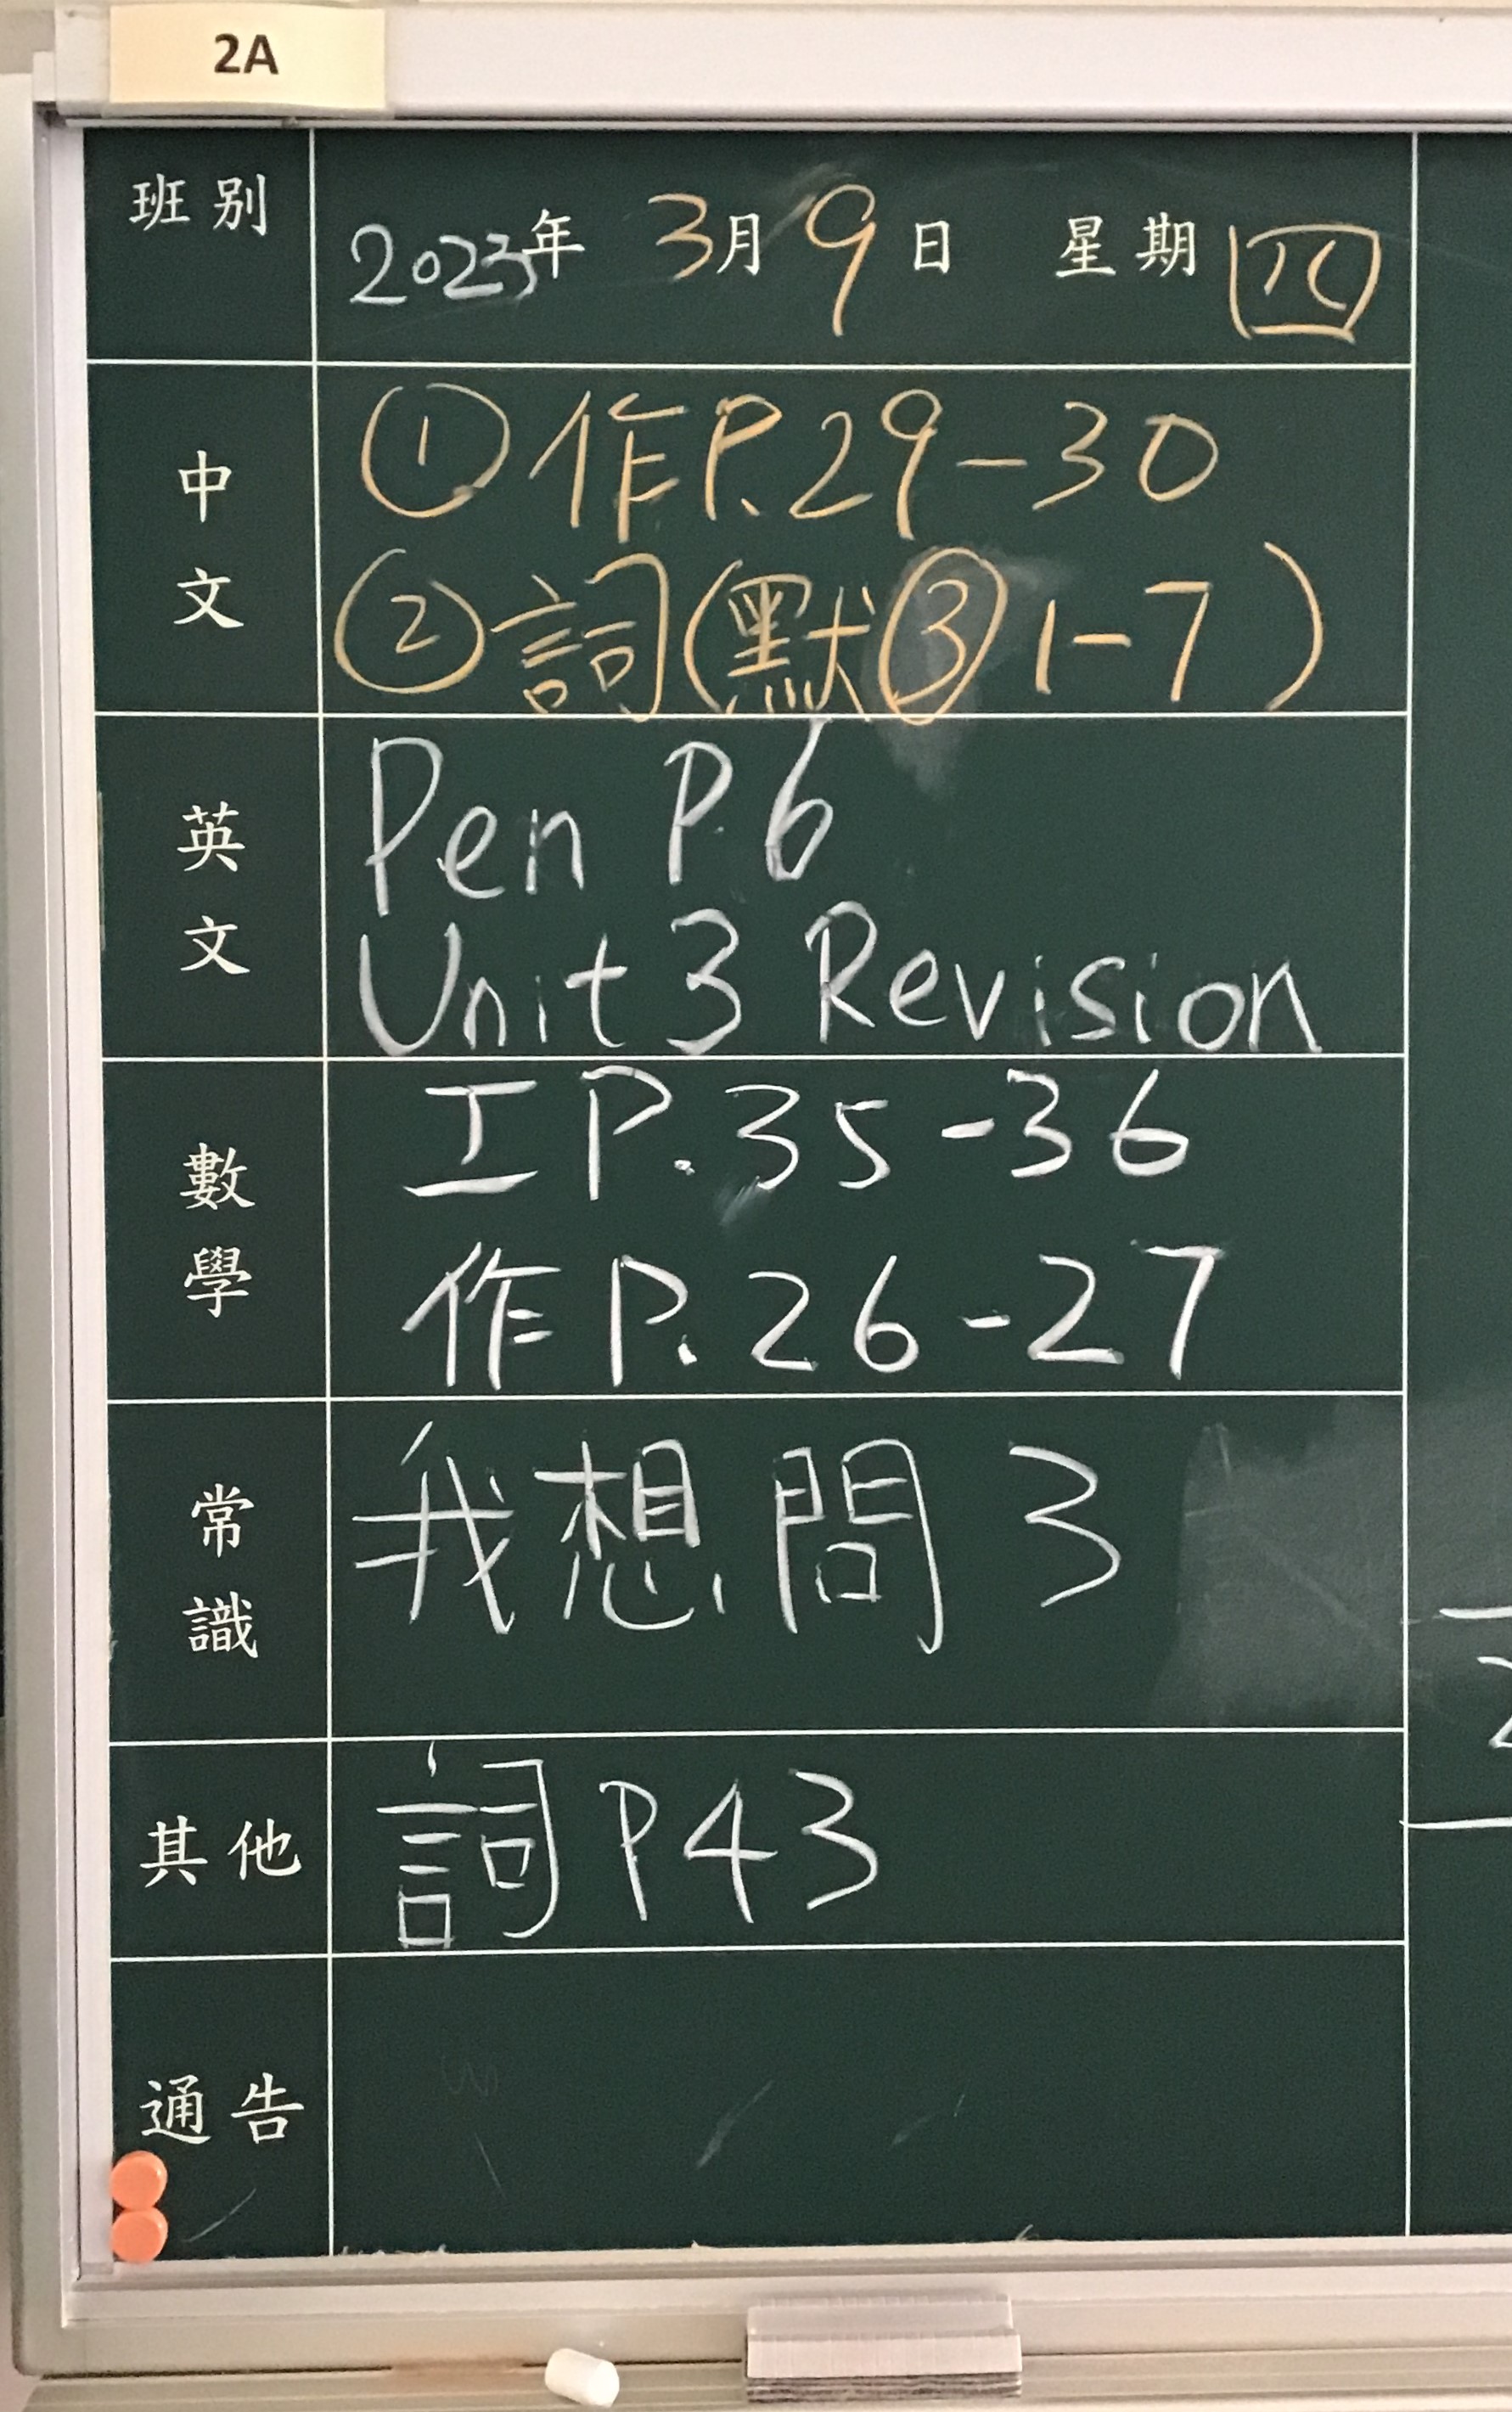 2A
班別 2023年 3月9日 星期四
中文
①作P.29-30
②詞(默③1-7)
英文
Pen P.6
Unit 3 Revision
數學
工P.35-36
作P.26-27
常識
我想問 3
其他
詞P43
通告